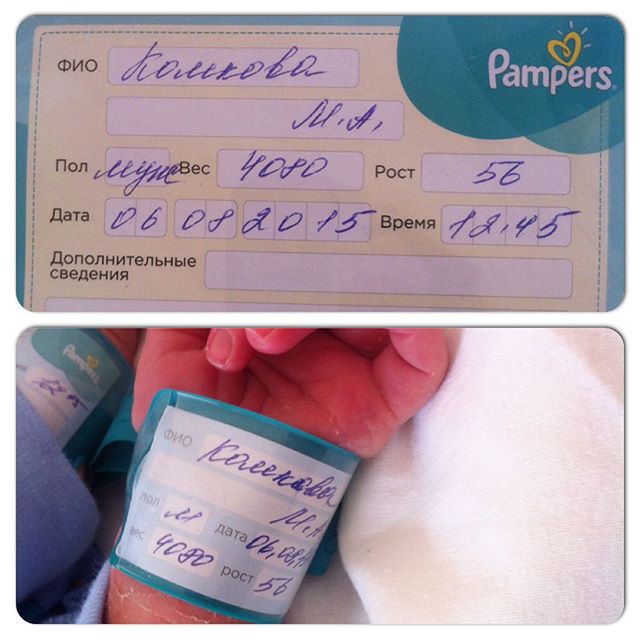 Pampers
ФИО Комкова
М.А.
Пол муж Вес 4080 Рост 56
Дата 06 08 2015 Время 12.45
Дополнительные
сведения
Pampers
12 45
ФИО Комкова
М.А
пол м дата 06,08,1
вес 4080 рост 56